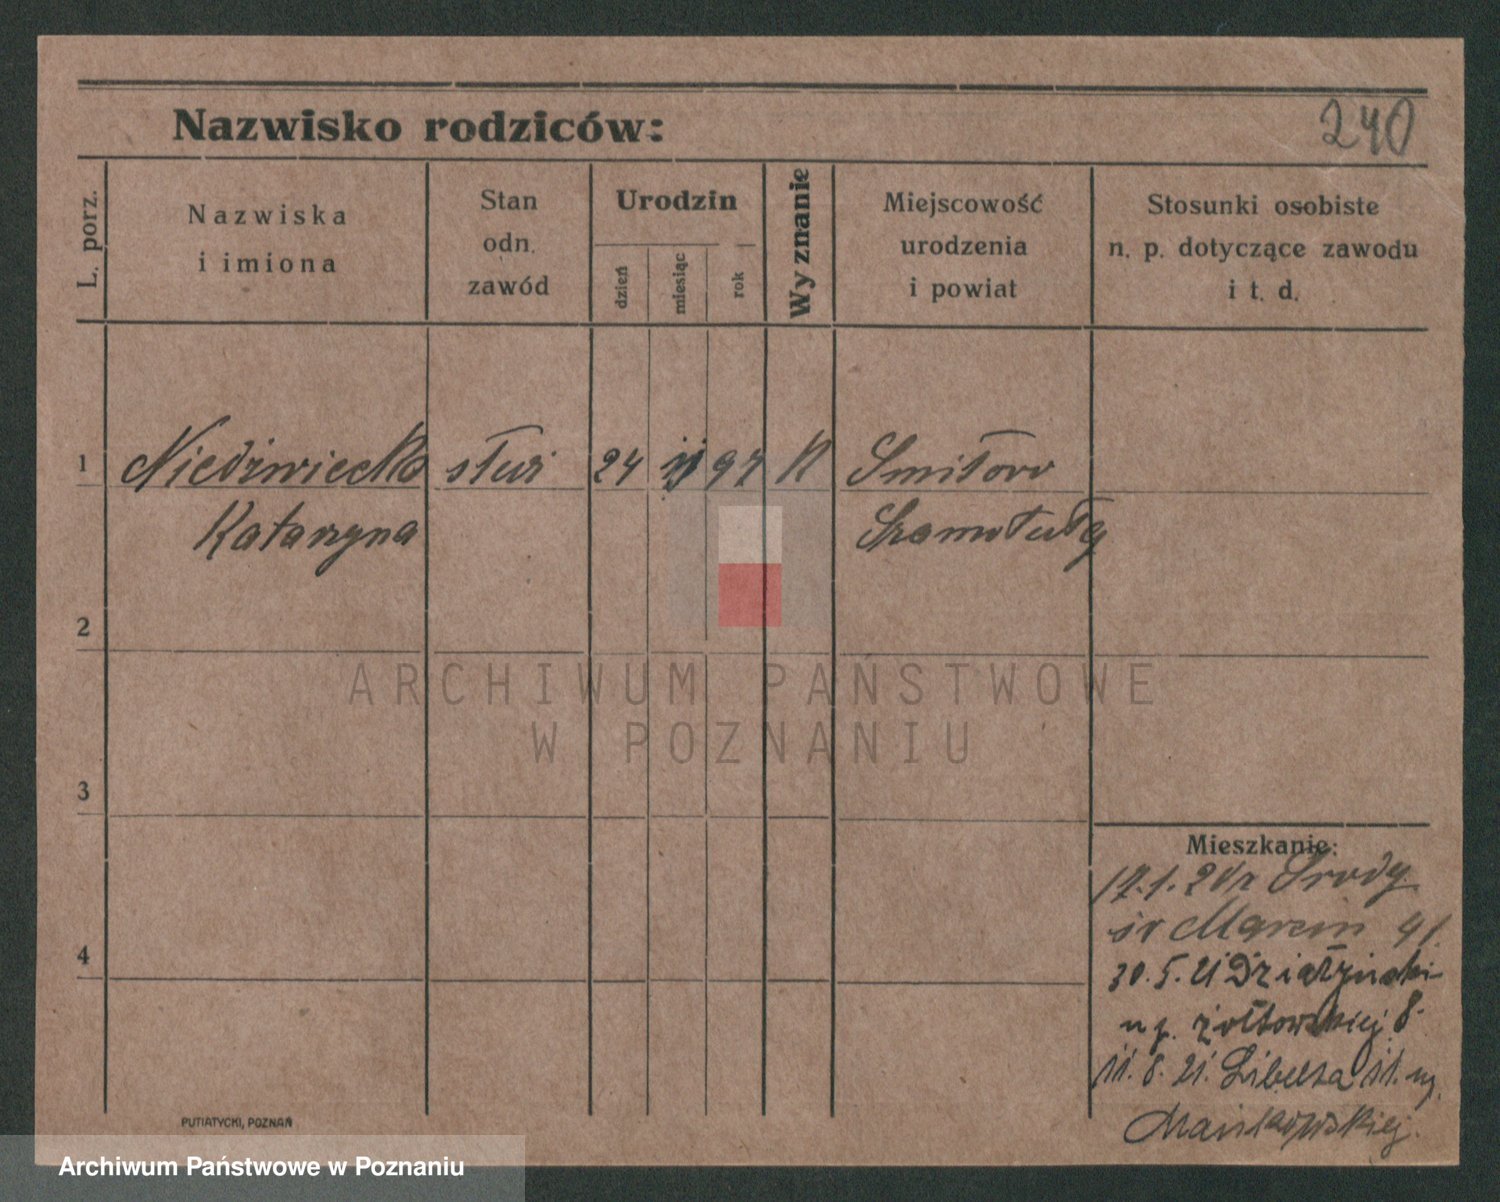 Nazwisko rodziców:
240
L. porz.
Nazwiska
i imiona
Stan
odn.
zawód
Urodzin
dzień
miesiąc
rok
Wyznanie
Miejscowość
urodzenia
i powiat
Stosunki osobiste
n. p. dotyczące zawodu
i t. d.
1
Niedźwiecka służ 24 97 K Smiłowo
Katarzyna Szamotuły
2
3
4
ARCHIWUM PAŃSTWOWE
W POZNANIU
Mieszkanie:
17.1.21 z Środy
św Marcin 41.
30.5.21 Działyńskich
u p. żołtowskiej 8.
11.8.21. Libelta 11. u p.
Mańkowskiej.
PUTIATYCKI, POZNAŃ
Archiwum Państwowe w Poznaniu